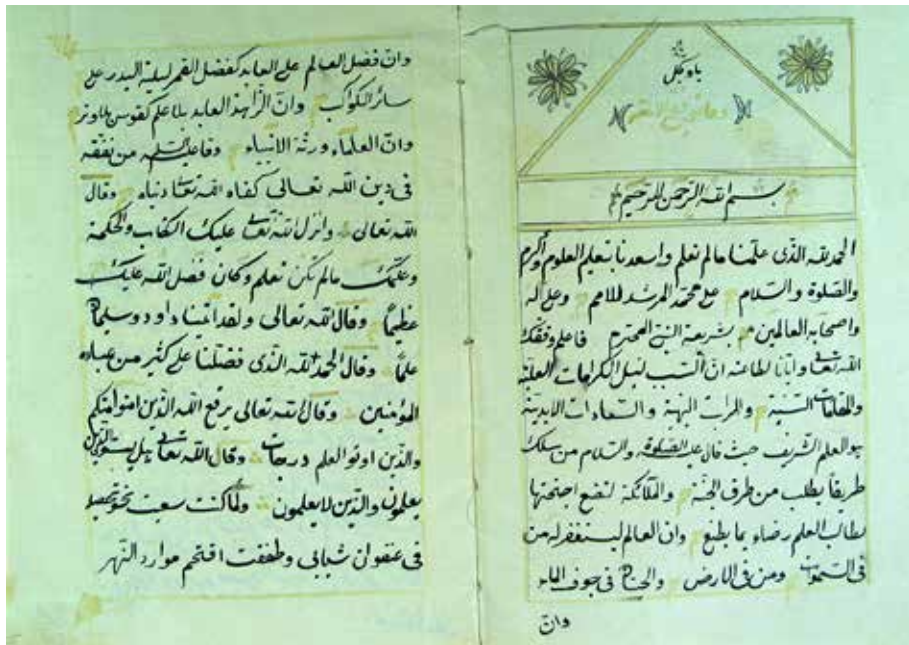 بسم الله الرحمن الرحيم
الحمد لله الذى علمنا مالم نعلم واسعدنا بتعليم العلوم واكرم
والصلوة والسلام على محمد المرشد للامم وعلى آله
واصحابه العالمين بشريعة النبى المحترم فاعلم وفقك
الله تعالى وايانا لطاعته ان السبب لنيل الكرامات العلية
والمقامات السنية والمراتب البهية والسعادات الابدية
هو العلم الشريف حيث قال عليه الصلوة والسلام من سلك
طريقا يطلب من طرف الجنة والملائكة لتضع اجنحتها
لطالب العلم رضاء بما يطلع وان العالم ليستغفر له من
فى السموات ومن فى الارض والحيتان فى جوف الماء
وان
وان فضل العالم على العابد كفضل القمر ليلة البدر على
سائر الكواكب وان الزاهد العابد بلا علم كقوس بلا وتر
وان العلماء ورثة الانبياء وقال عليه السلام من تفقه
فى دين الله تعالى كفاه الله تعالى دنياه وقال
الله تعالى وانزل الله تعالى عليك الكتاب والحكمة
وعلمك مالم تكن تعلم وكان فضل الله عليك
عظيما وقال الله تعالى ولقد اتينا داود وسليمان
علما وقال الحمد لله الذى فضلنا على كثير من عباده
المؤمنين وقال الله تعالى يرفع الله الذين امنوا منكم
والذين اوتوا العلم درجات وقال الله تعالى هل يستوى الذين
يعلمون والذين لا يعلمون ولما كنت سعيت نحو تحصيله
فى عنفوان شبابى وطفقت اقتحم موارد النهر